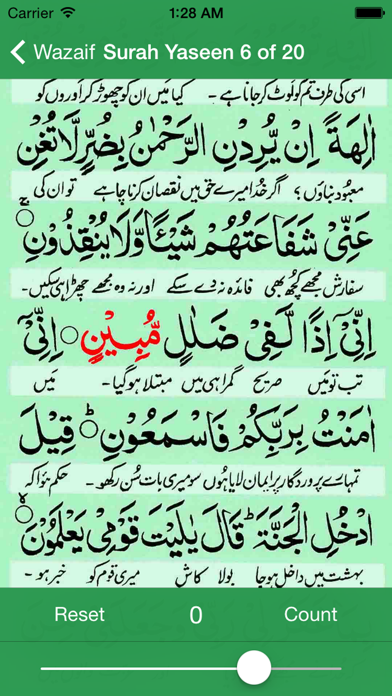 Carrier 1:28 AM
Wazaif Surah Yaseen 6 of 20
اسی کی طرف تم کو لوٹ کر جانا ہے - کیا میں ان کو چھوڑ کر اوروں کو
اٰلِهَةً اِنْ يُّرِدْنِ الرَّحْمٰنُ بِضُرٍّ لَّا تُغْنِ
معبود بناؤں؟ اگر خدا میرے حق میں نقصان کرنا چاہے تو ان کی
عَنِّيْ شَفَاعَتُهُمْ شَيْـًٔا وَّلَا يُنْقِذُوْنِ ۚ
سفارش مجھے کچھ بھی فائدہ نہ دے سکے اور نہ وہ مجھے چھڑا ہی سکیں-
اِنِّيْٓ اِذًا لَّفِيْ ضَلٰلٍ مُّبِيْنٍ اِنِّيْٓ
تب تو میں صریح گمراہی میں مبتلا ہو گیا- میں
اٰمَنْتُ بِرَبِّكُمْ فَاسْمَعُوْنِ ؕ قِيْلَ
تمہارے پروردگار پر ایمان لایا ہوں سو میری بات سن رکھو- حکم ہوا کہ
ادْخُلِ الْجَنَّةَ ؕ قَالَ يٰلَيْتَ قَوْمِيْ يَعْلَمُوْنَ ۙ
بہشت میں داخل ہو جا بولا کاش میری قوم کو خبر ہو-
Reset 0 Count